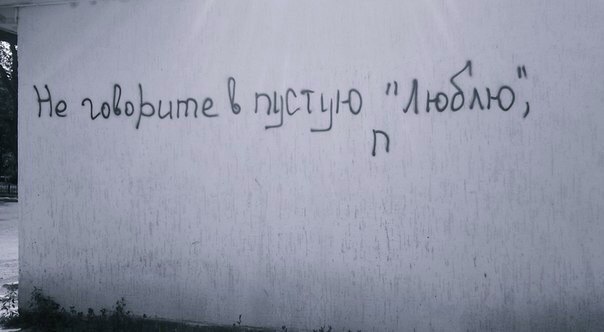 Не говорите в пустую "Люблю",
п